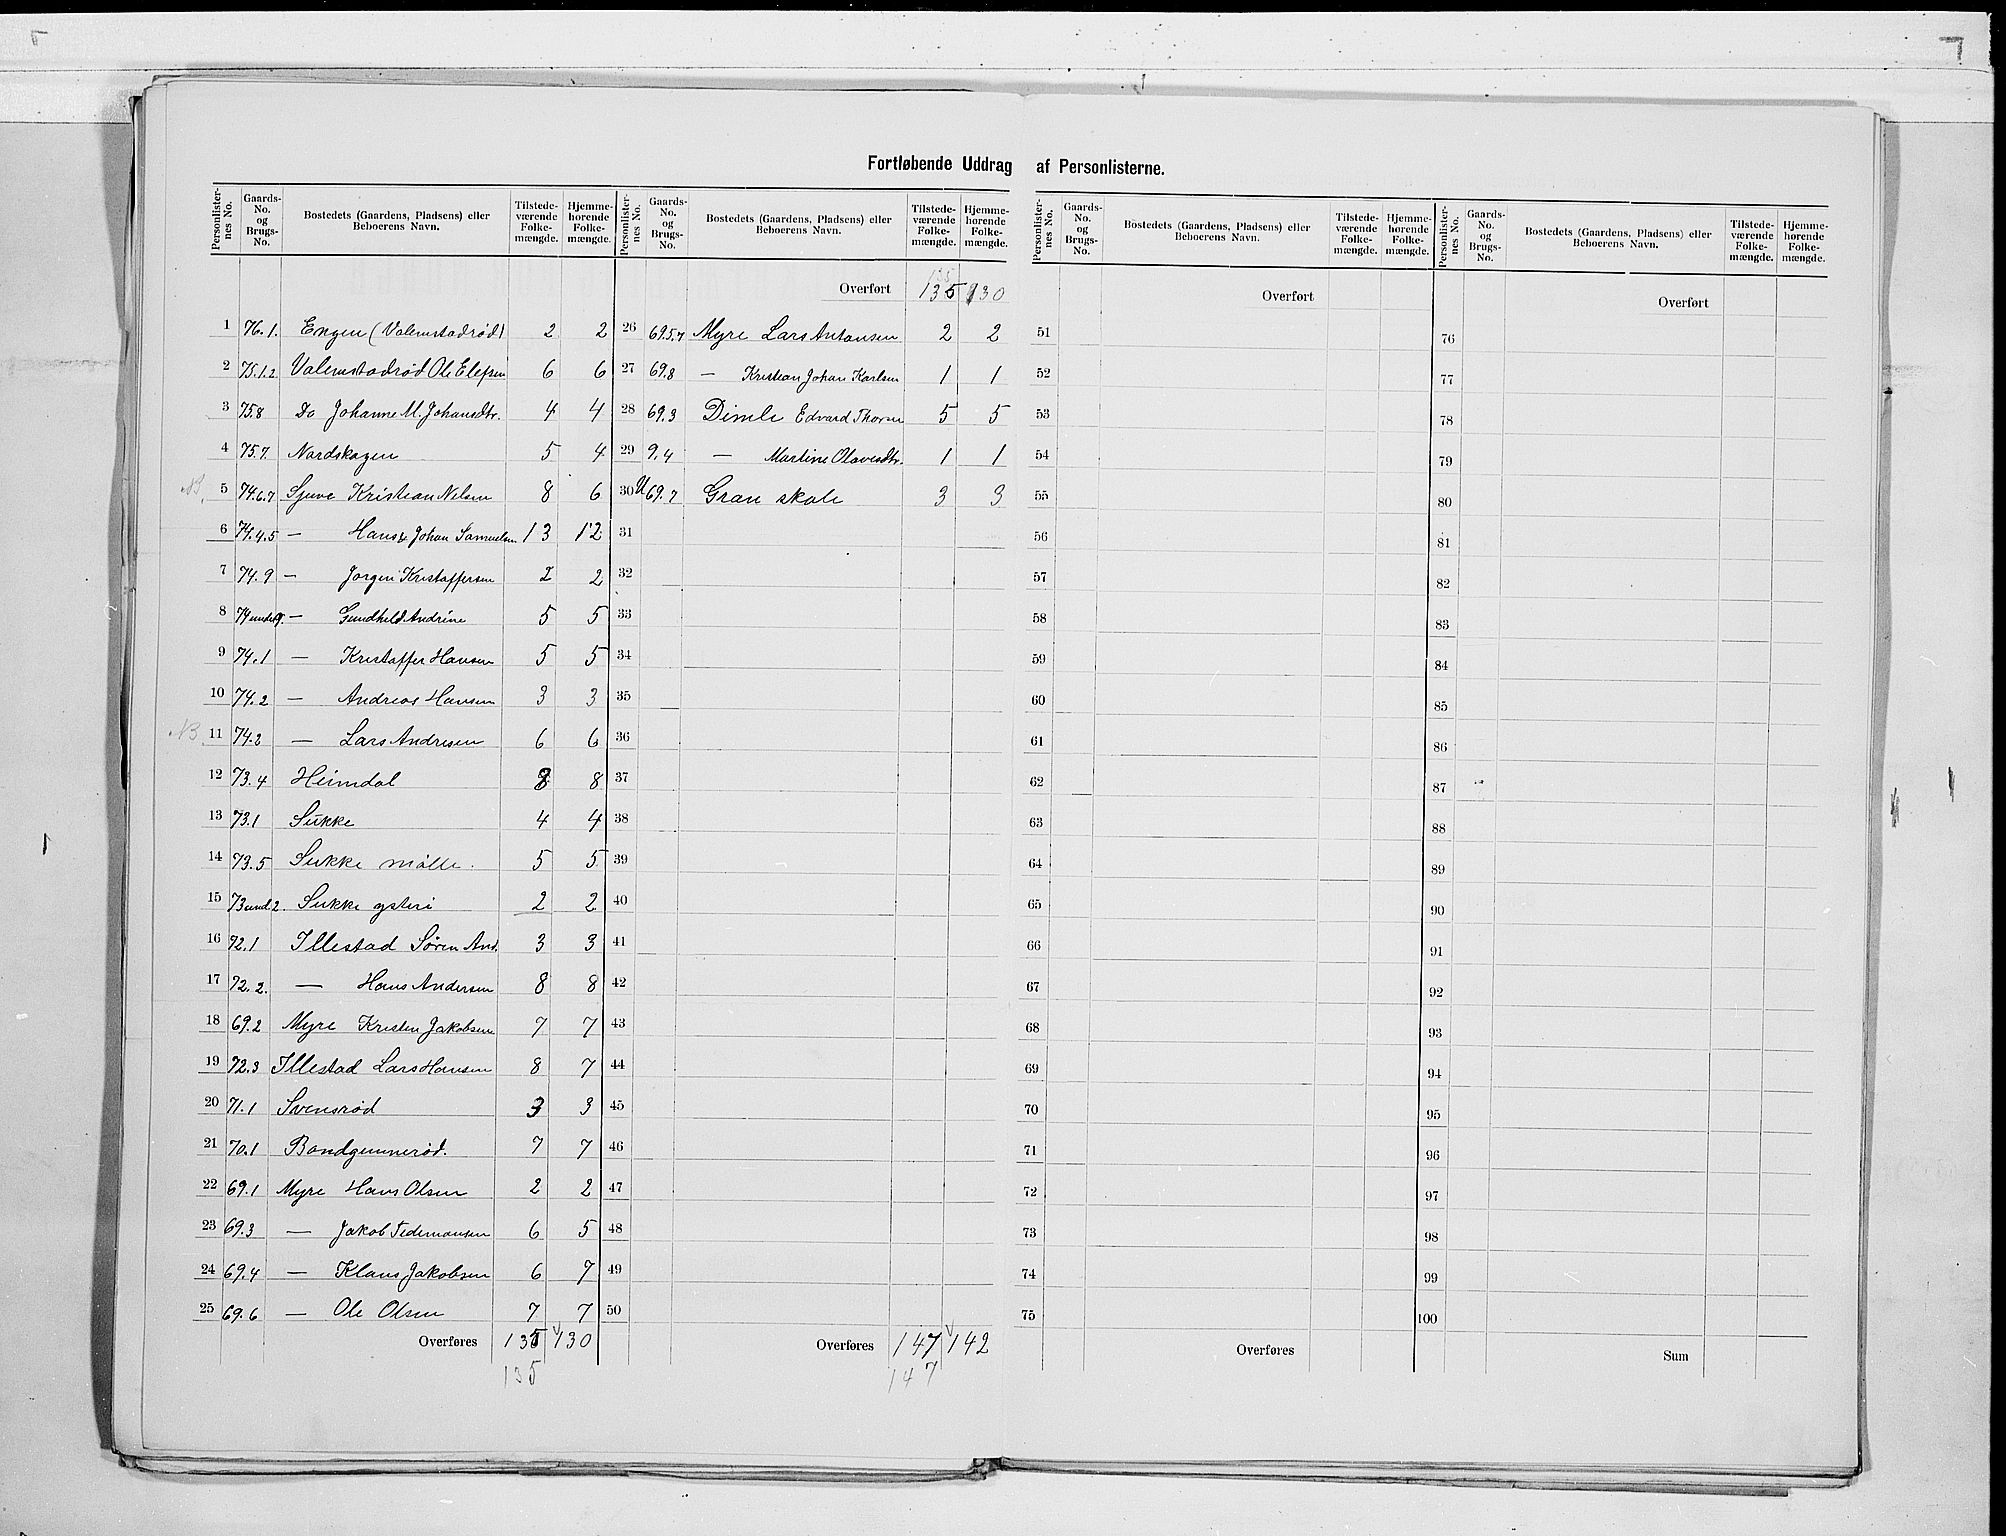 Fortløbende Uddrag af Personlisterne.
Personlisternes No. Gaards-No. og Brugs-No. Bostedets (Gaardens, Pladsens) eller Beboerens Navn. Tilstedeværende Folkemængde. Hjemmehørende Folkemængde.
1 76.1. Engen (Valemstadrød) 2 2
2 75.1.2 Valemstadrød Ole Elefsen 6 6
3 75.8 Do Johanne M. Johansdtr. 4 4
4 75.7. Nordskogen 5 4
5 74.6.7 Sjuve Kristian Nilsen 8 6
6 74.4.5 — Hans & Johan Samuelsen 13 12
7 74.9 — Jørgen Kristoffersen 2 2
8 74 under 9. — Gundhild Andrine 5 5
9 74.1 — Kristoffer Hansen 5 5
10 74.2 — Andreas Hansen 3 3
NB. 11 74.2 — Lars Andresen 6 6
12 73.4 Heimdal 8 8
13 73.1 Sukke 4 4
14 73.5 Sukke mølle. 5 5
15 73 und. 2. Sukke ysteri 2 2
16 72.1 Illestad Søren And. 3 3
17 72.2. — Hans Andersen 8 8
18 69.2 Myre Kristen Jakobsen 7 7
19 72.3 Illestad Lars Hansen 8 7
20 71.1 Svensrød 3 3
21 70.1 Bondgunnerød. 7 7
22 69.1 Myre Hans Olsen 2 2
23 69.3 — Jakob Tidemansen 6 5
24 69.4 — Klaus Jakobsen 6 7
25 69.6 — Ole Olsen 7 7
Overføres 135 130
135
Personlisternes No. Gaards-No. og Brugs-No. Bostedets (Gaardens, Pladsens) eller Beboerens Navn. Tilstedeværende Folkemængde. Hjemmehørende Folkemængde.
Overført 135 130
26 69.5.7 Myre Lars Antonsen 2 2
27 69.8 — Kristian Johan Karlsen 1 1
28 69.3 Dimle Edvard Thorsen 5 5
29 9.4 — Martine Olavesdtr. 1 1
30 69.7 Gran skole 3 3
31
32
33
34
35
36
37
38
39
40
41
42
43
44
45
46
47
48
49
50
Overføres 147 142
147
Personlisternes No. Gaards-No. og Brugs-No. Bostedets (Gaardens, Pladsens) eller Beboerens Navn. Tilstedeværende Folkemængde. Hjemmehørende Folkemængde.
Overført
51
52
53
54
55
56
57
58
59
60
61
62
63
64
65
66
67
68
69
70
71
72
73
74
75
Overføres
Personlisternes No. Gaards-No. og Brugs-No. Bostedets (Gaardens, Pladsens) eller Beboerens Navn. Tilstedeværende Folkemængde. Hjemmehørende Folkemængde.
Overført
76
77
78
79
80
81
82
83
84
85
86
87
88
89
90
91
92
93
94
95
96
97
98
99
100
Sum